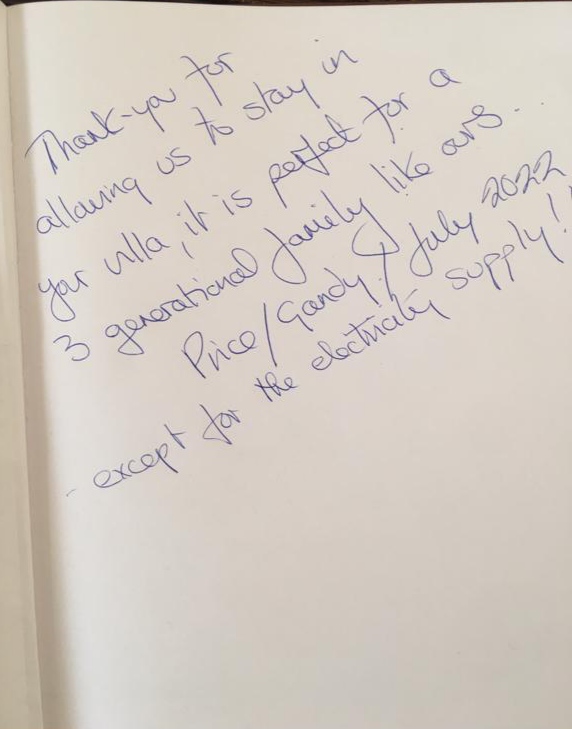 Thank-you for
allowing us to stay in
your villa, it is perfect for a
3 generational family like ours...
Price/Gandy July 2022
- except for the electricity supply!!